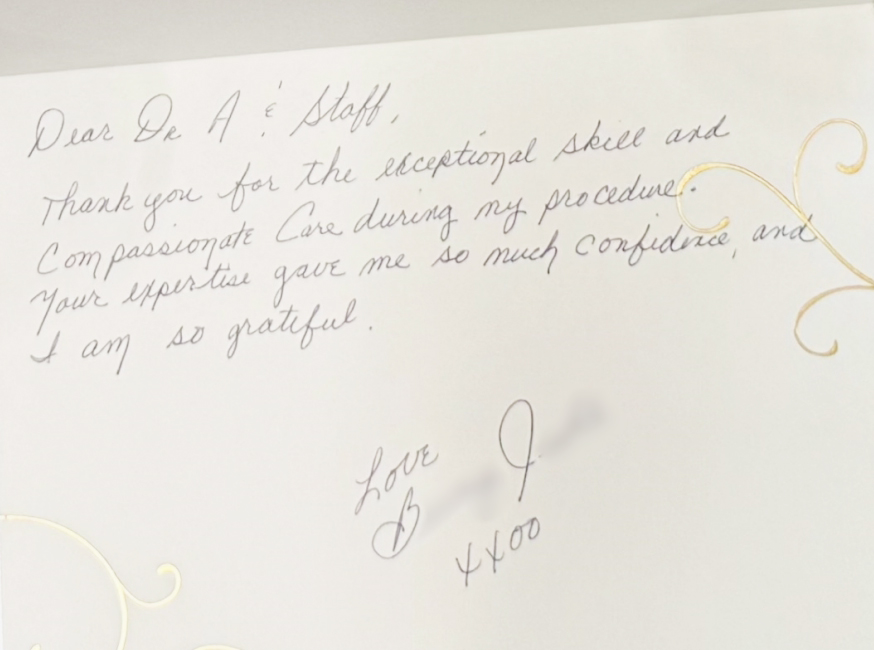 Dear Dr A & Staff,
Thank you for the exceptional skill and
Compassionate Care during my procedure.
Your expertise gave me so much confidence, and
I am so grateful.
Love
B J
xxoo